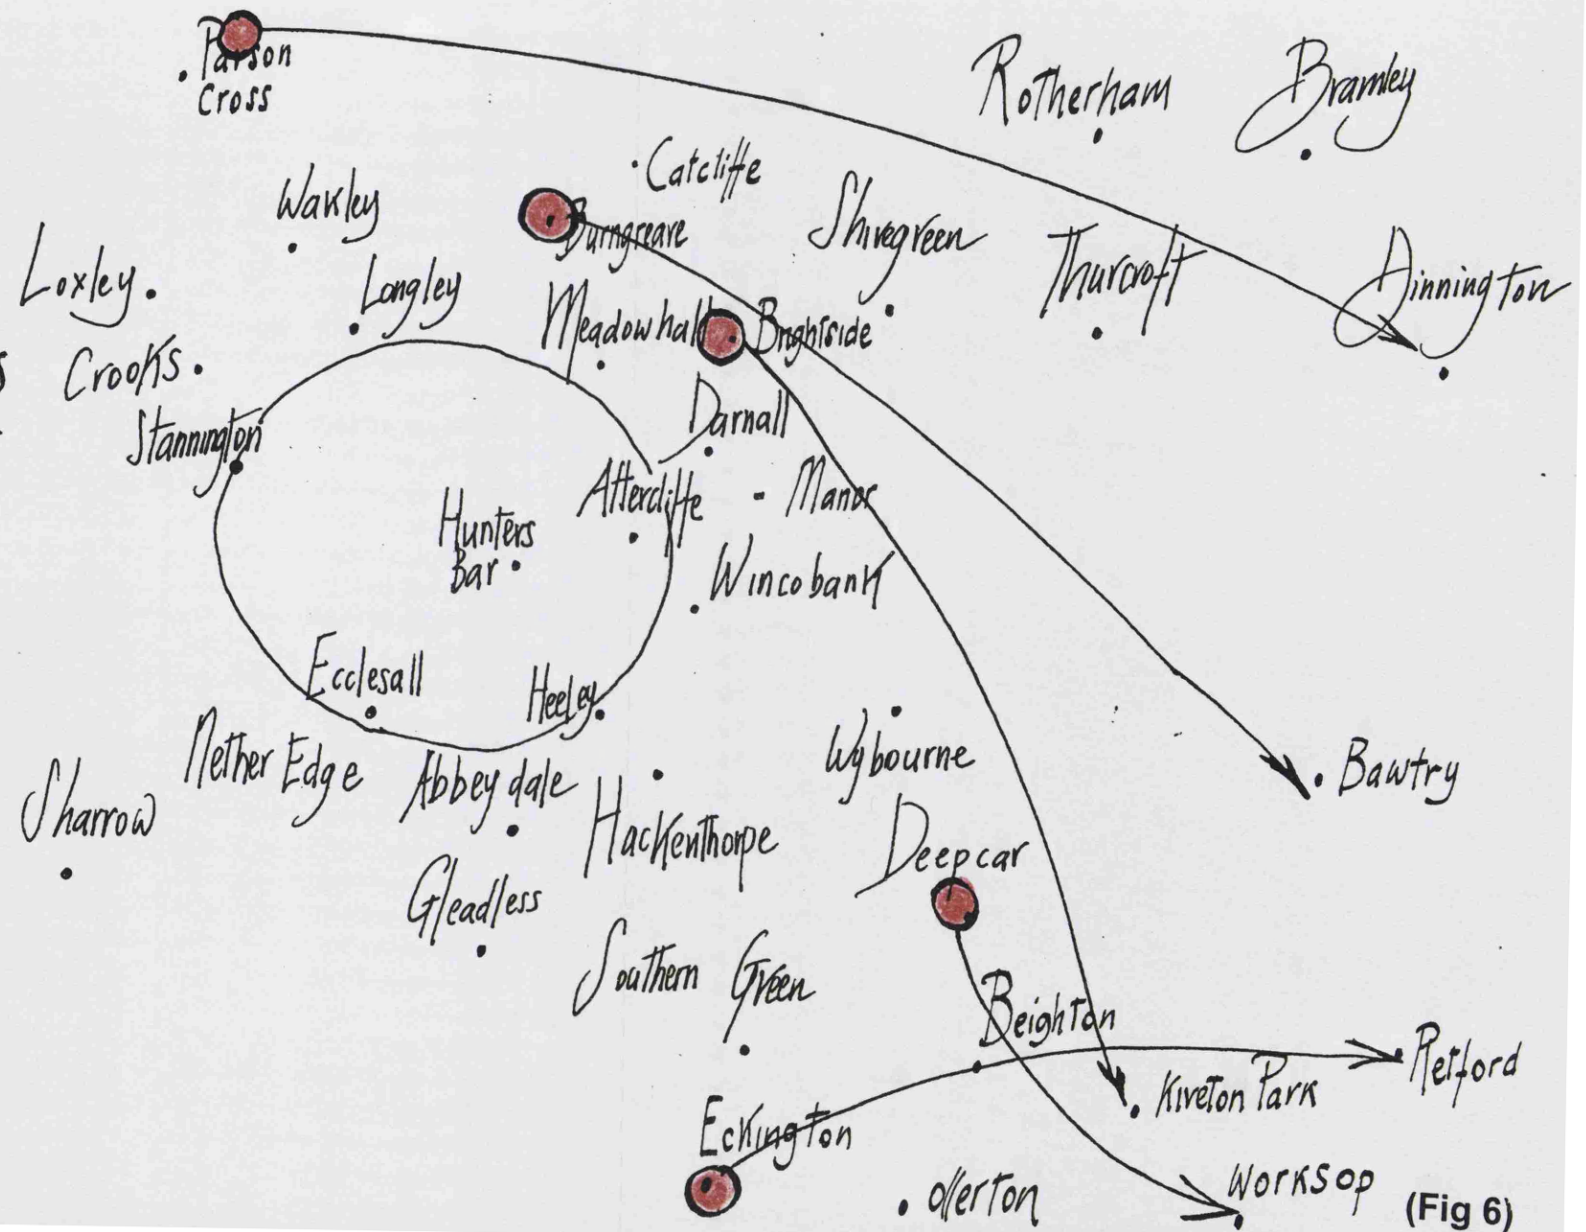 Parson
Cross
Rotherham
Bramley
Catcliffe
Wakley
Burngreave
Shiregreen
Thurcroft
Dinnington
Loxley
Longley
Meadowhall
Brightside
Crooks
Darnall
Stannington
Attercliffe
Manor
Hunters
Bar
Wincobank
Ecclesall
Heeley
Nether Edge
Abbeydale
Wybourne
Bawtry
Sharrow
Hackenthorpe
Deepcar
Gleadless
Southern Green
Beighton
Retford
Kiveton Park
Eckington
Ollerton
Worksop
(Fig 6)